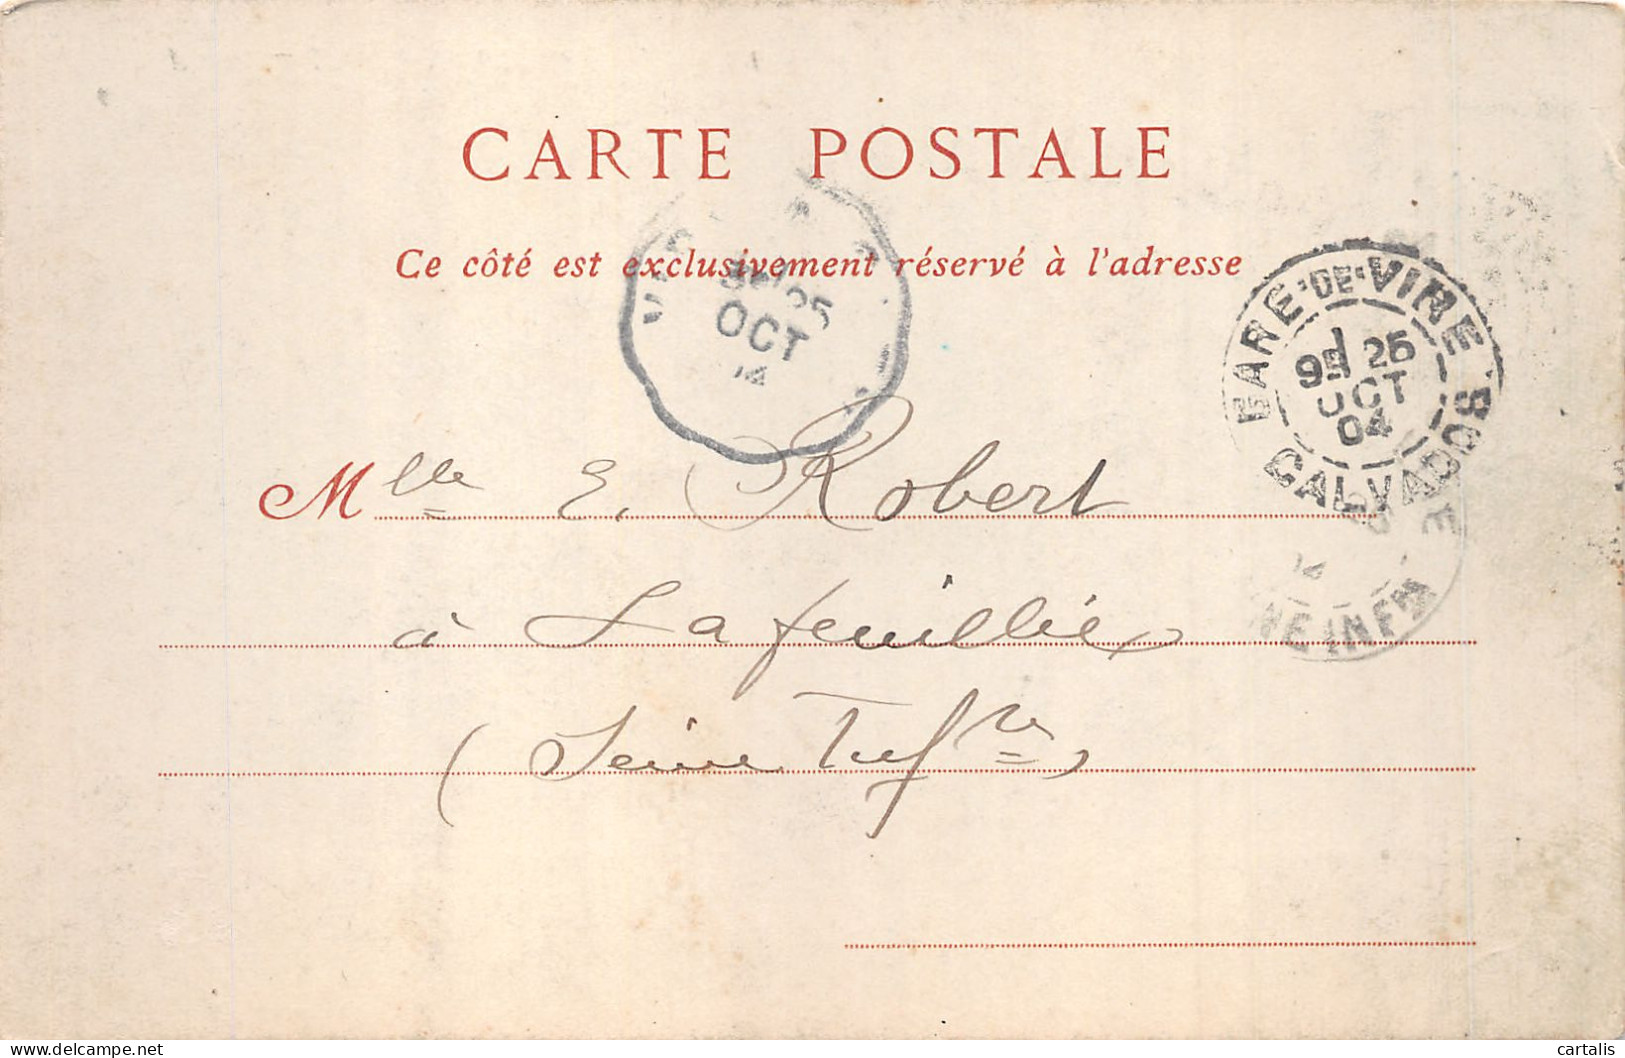 CARTE POSTALE
Ce côté est exclusivement réservé à l'adresse
OCT
GARE-DE-VIRE
9E 25
OCT
04
CALVADOS
Mlle E. Robert
à Lafeuillie
(Seine Infre)
INE INFRE
www.delcampe.net
cartalis